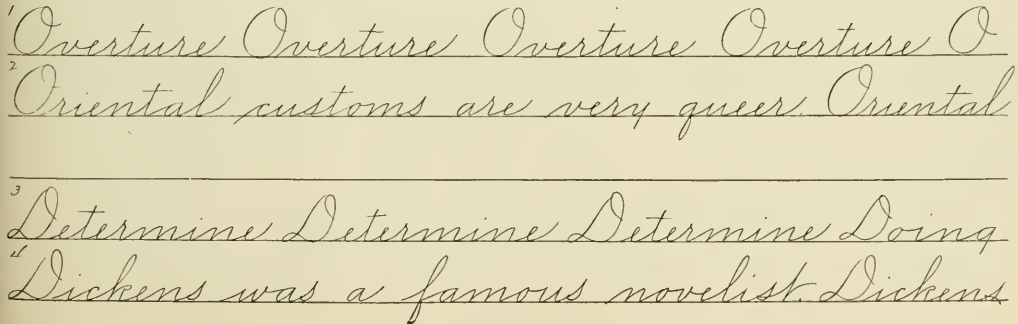 1 Overture Overture Overture Overture O
2 Oriental customs are very queer. Oriental
3 Determine Determine Determine Doing
4 Dickens was a famous novelist. Dickens